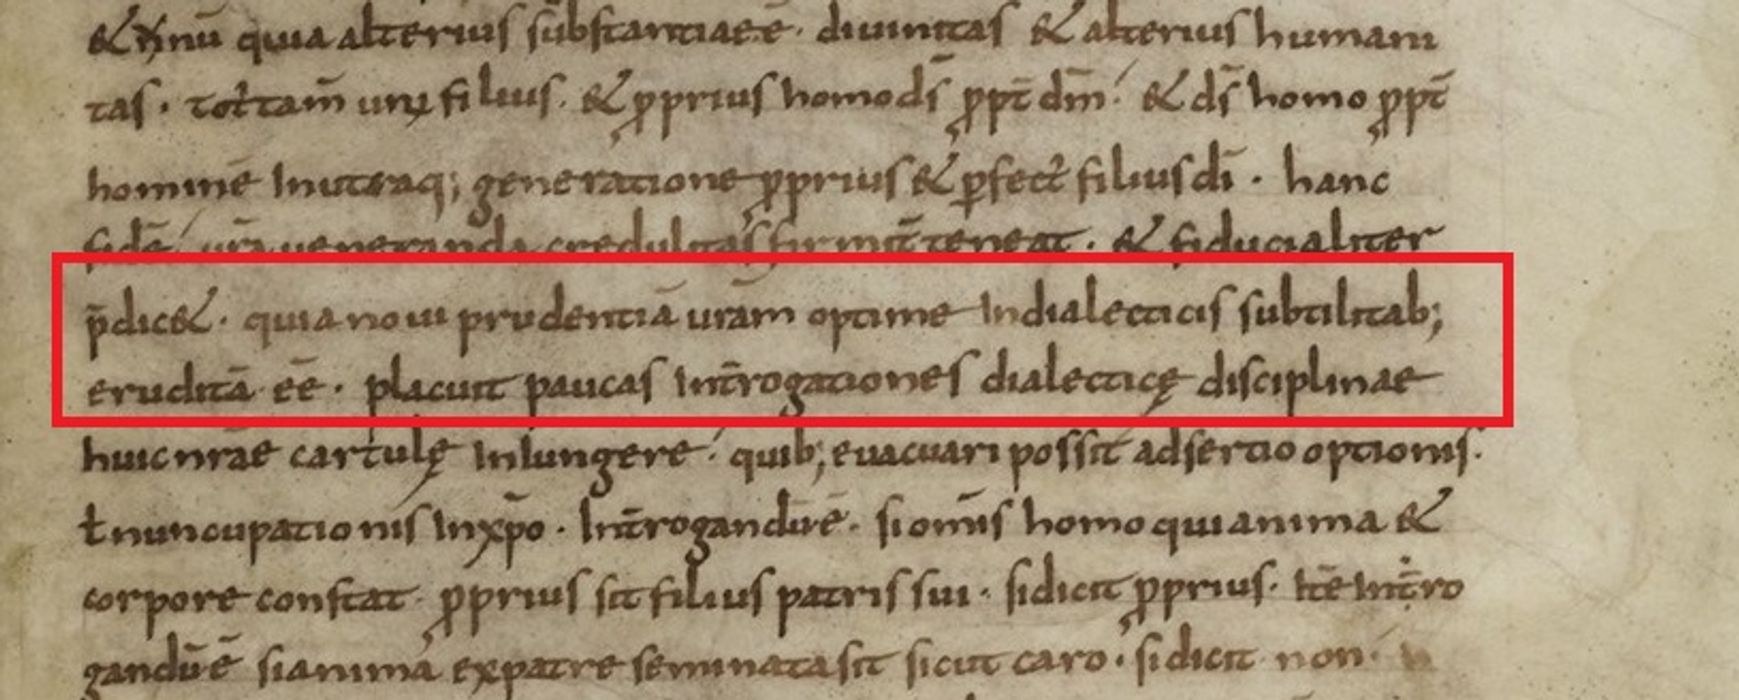 & xp̄ianū quia alterius substantiae ē· diuinitas & alterius humani
tas· tot̄ tam̄ unꝰ filius· & ꝓprius homo dī ꝓpt̄ dm̄· & ds̄ homo ꝓpt̄
hominē In utraq; generatione ꝓprius & ꝑfect᾿ filius dī· hanc
fidē ur̄a ueneranda credulitas firmit̄ teneat· & fiducialiter
p̄dic&· quia noui prudentiā uram̄ optime In dialecticis subtilitab;
eruditā eē· placuit paucas Int̄rogationes dialecticę disciplinae
huic nrāe cartulę Iniungere· quib; euacuari possit adsertio optionis·
ł nuncupationis In xp̄o· Int̄rogandū ē· si om̄is homo qui anima &
corpore constat· ꝓprius sit filius patris sui· si dicit ꝓprius· Int̄ro
gandū ē si anima ex patre seminata sit sicut caro· si dicit non·